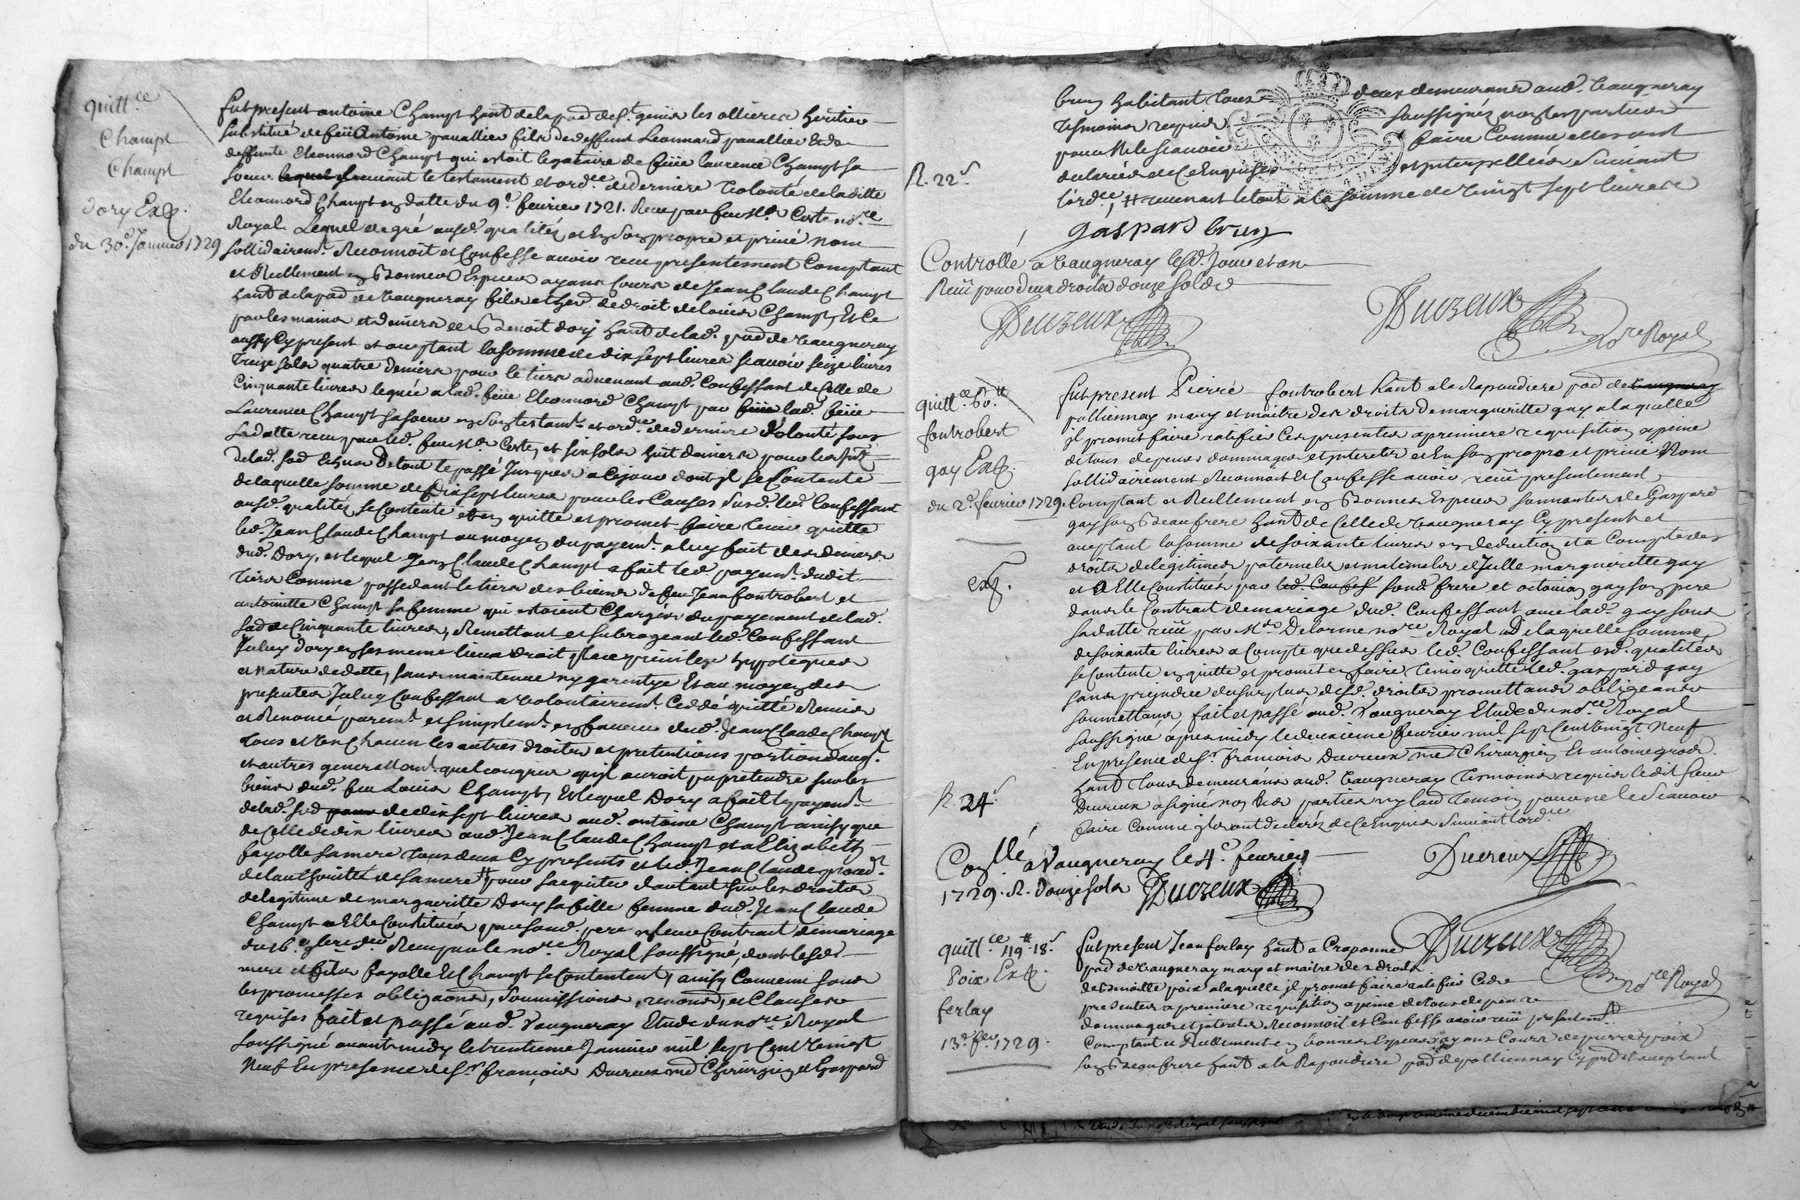 quitt.ce
Champt
Champt
dory Exp.
du 30.e Janvier 1729
fut present antoine Champt hant de la pad de St. genis les ollieres heritier
substitué de feü antoine pavallier fils de deffunt Leonnard pavallier & de
deffunte Eleonnord Champt qui estoit legataire de feüe laurence Champt sa
soeur suivant le testament et ord.ce de derniere volonté de la ditte
Eleonnord Champt en datte du 9.e fevrier 1721. Receu par feu M.e Coste no.re
Royal Lequel de gré ausd. qualités et En son propre et privé nom
sollidairem.t Reconnoit et Confesse avoir receu presentement Comptant
et Reellement en Bonnes Especes ayant Cours de Jean Claude Champt
hant de la pad de Vaugneray fils et her. de droit de Louis Champt, Et Ce
par les mains et deniers de Benoit dory hant de lad. pad de Vaugneray
aussy Cy present et acceptant la somme de dix sept livres scavoir seize livres
treize sols quatre deniers pour le tiers advenant aud. Confessant de Celle de
Cinquante livres leguée a lad. feüe Eleonnord Champt par lad. feüe
Laurence Champt sa soeur en son testam.t et ord.ce de derniere volonté sous
sa datte receu par led. feu M.e Coste, et six sols huit deniers pour les
de lad. so.e Echus de tout le passé Jusques a Ce jour dont il se Contente
de laquelle somme de Dix sept livres pour les Causes susd. led. Confessant
ausd. qualités se Contente et en quitte et promet faire tenir quitte
led. Jean Claude Champt au moyen du payem.t a luy fait des deniers
dud. Dory, et lequel Jean Claude Champt a fait led. payem.t dudit
tiers Comme possedant le tiers des biens de feu Jean fontrobert et
antoinette Champt sa femme qui estoient Chargés du payement de lad.
so.e de Cinquante livres, Remettant et subrogeant led. Confessant
Icelluy dory en ses meme lieux droit place privilege hypoteques
et nature de dette, sans maintenue ny garentye Et au moyen des
presentes Icelluy Confessant a volontairem.t Cedé quitté Remis
et Renoncé purem.t et simplem.t en faveur dud. Jean Claude Champt
tous et Un Chacun les autres droits et pretentions portion d'aug.t
et autres generallem.t quelconques qu'il auroit pu pretendre sur les
biens dud. feu Louis Champt, Et lequel Dory a fait le payem.t
de lad. so.e de dix sept livres aud. antoine Champt ainsy que
de Celle de dix livres aud. Jean Claude Champt et a Elizabeth
fayolle sa mere tous deux Cy presents et led. Jean Claude proced.t
de l'authorité de sa mere pour s'acquitter d'autant sur les droits
de legitime de margueritte Dory sa fille femme dud. Jean Claude
Champt a Elle Constitués par sond. pere en leur Contrat de mariage
Receu par le no.re Royal soussigné, dont lesd.
mere et fils fayolle Et Champt se Contentent, ainsy Convenu sous
les promesses obligaons, soumissions, renonc.s et Clauses
requises fait et passé aud. Vaugneray Etude du no.re Royal
soussigné avant midy le trentieme Janvier mil sept Cent Vingt
Neuf En presence de S.r françois Ducreux m.e Chirurgien et Gaspard
brun habitant tous deux demeurants aud. Vaugneray
tesmoins requis soussignés non les parties
pour ne le scavoir faire Comme elles ont
declarés de Ce Enquises et interpellées suivant
l'ord.ce, revenant le tout a la somme de Vingt sept livres
R. 22.s
gaspard brun
Controllé a Vaugneray lesd. Jour et an
Receü pour deux droits douze sols
Ducreux
Ducreux
no.re Royal
quitt.ce 60.tt
fontrobert
gay Exp.
du 2.e fevrier 1729.
exp.
fut present Pierre fontrobert hant a la Rapaudiere pad de
pollionnay mary et maitre des droits de margueritte gay a laquelle
il promet faire ratiffier Ces presentes a premiere requisition a peine
de tous depens dommages et interets et En son propre et privé Nom
sollidairement Reconnoit et Confesse avoir receü presentement
Comptant et Reellement en Bonnes Especes sonnantes de Gaspard
gay son Beau frere hant de Celle de Vaugneray Cy present et
acceptant la somme de soixante livres en deduction et a Compte des
droits de legitimes paternels et maternels d'icelle marguerette gay
et a Elle Constitués par sond. frere et antoine gay son pere
dans le Contrat de mariage dud. Confessant avec lad. gay sous
sa datte receü par M.e Delorme no.re Royal de laquelle somme
de soixante livres a Compte que dessus led. Confessant esd. qualités
se Contente en quitte et promet en faire tenir quitte led. gaspard gay
sans prejudice du surplus desd. droits promettant obligeants
soumettans, fait et passé aud. Vaugneray Etude du no.re Royal
soussigné apres midy le deuxieme fevrier mil sept Cent Vingt Neuf
En presence de S.r francois Ducreux m.e Chirurgien Et antoine grod
hant tous demeurans aud. Vaugneray tesmoins requis ledit sieur
Ducreux a signé non les parties ny lautre temoin pour ne le scavoir
faire Comme ils ont declarés de Ce Enquis suivant l'ord.ce
R. 24.s
Con.llé a Vaugneray le 4.e fevrier
1729. R. douze sols Ducreux
Ducreux
quitt.ce 49.tt 18.s
Poix Exp.
ferlay
13.e fev. 1729.
fut present Jean ferlay hant a Craponne
pad de Vaugneray mary et maitre des droits
de benoitte poix a laquelle il promet faire ratiffier Ces
presentes a premiere requisition a peine de tous depens
dommages et interets Reconnoit et Confesse avoir receü presentem.t
Comptant et Reellement en bonnes Especes ayans Cours de pierre poix
son Beau frere hant a la Rapaudiere pad de pollionnay Cy pnt et acceptant
Ducreux
no.re Royal